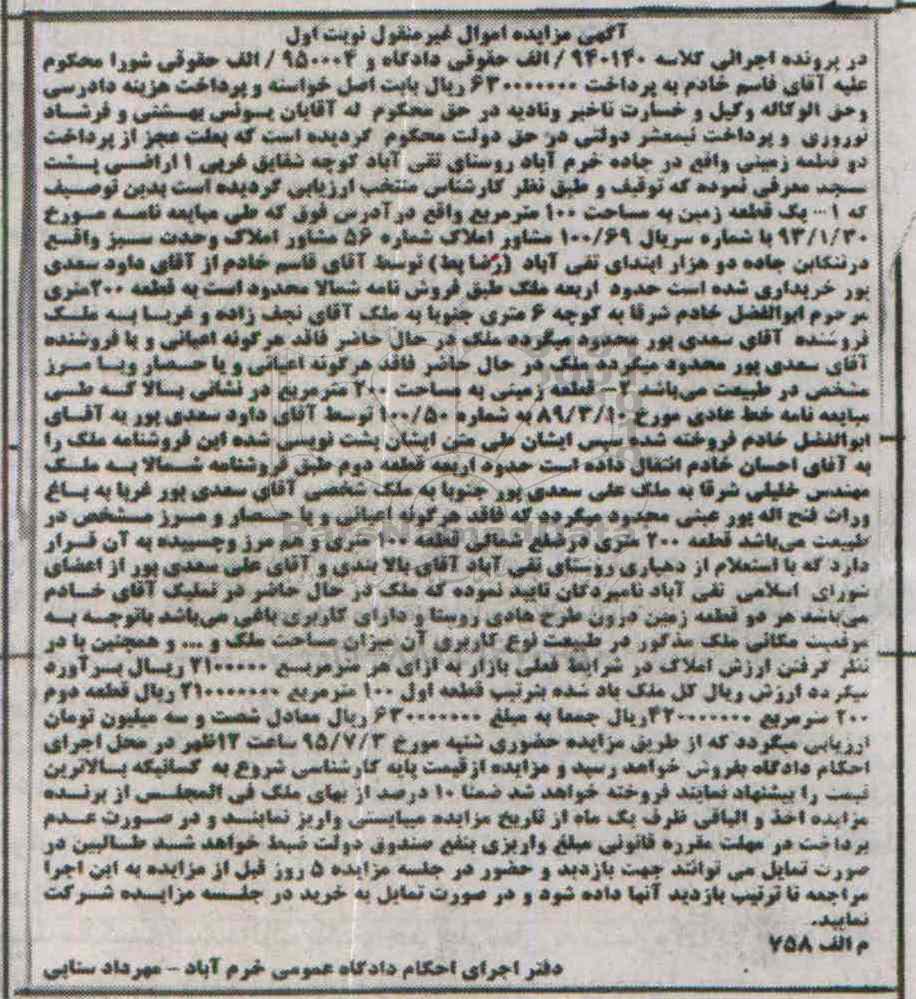 آگهی مزایده اموال غیرمنقول نوبت اول
در پرونده اجرائی کلاسه ۹۴۰۱۴۰ / الف حقوقی دادگاه و ۹۵۰۰۰۴ / الف حقوقی شورا محکوم
علیه آقای قاسم خادم به پرداخت ۶۳۰۰۰۰۰۰۰ ریال بابت اصل خواسته و پرداخت هزینه دادرسی
وحق الوکاله وکیل و خسارت تاخیر وتادیه در حق محکوم له آقایان یونس بهشتی و فرشاد
نوروزی و پرداخت نیمعشر دولتی در حق دولت محکوم گردیده است که بعلت عجز از پرداخت
دو قطعه زمینی واقع در جاده خرم آباد روستای تقی آباد کوچه شقایق غربی ۱ اراضی پشت
مسجد معرفی نموده که توقیف و طبق نظر کارشناس منتخب ارزیابی گردیده است بدین توصیف
که ۱- یک قطعه زمین به مساحت ۱۰۰ مترمربع واقع درآدرس فوق که طی مبایعه نامه مورخ
۹۳/۱/۳۰ با شماره سریال ۱۰۰/۶۹ مشاور املاک شماره ۵۶ مشاور املاک وحدت سبز واقع
درتنکابن جاده دو هزار ابتدای تقی آباد (رضا بط) توسط آقای قاسم خادم از آقای داود سعدی
پور خریداری شده است حدود اربعه ملک طبق فروش نامه شمالا محدود است به قطعه ۲۰۰متری
مرحوم ابوالفضل خادم شرقا به کوچه ۶ متری جنوبا به ملک آقای نجف زاده و غربا به ملک
فروشنده آقای سعدی پور محدود میگردد ملک در حال حاضر فاقد هرگونه اعیانی و یا فروشنده
آقای سعدی پور محدود میگردد ملک در حال حاضر فاقد هرگونه اعیانی و یا حصار ویا مرز
مشخص در طبیعت می‌باشد ۲- قطعه زمینی به مساحت ۲۰۰ مترمربع در نشانی بالا که طی
مبایعه نامه خط عادی مورخ ۸۹/۳/۱۰ به شماره ۱۰۰/۵۰ توسط آقای داود سعدی پور به آقای
ابوالفضل خادم فروخته شده سپس ایشان طی متن ایشان پشت نویسی شده این فروشنامه ملک را
به آقای احسان خادم انتقال داده است حدود اربعه قطعه دوم طبق فروشنامه شمالا به ملک
مهندس خلیلی شرقا به ملک علی سعدی پور جنوبا به ملک شخصی آقای سعدی پور غربا به باغ
وراث فتح اله پور عینی محدود میگردد که فاقد هرگونه اعیانی و یا حصار و مرز مشخص در
طبیعت می‌باشد قطعه ۲۰۰ متری درضلع شمالی قطعه ۱۰۰ متری و هم مرز وچسبیده به آن قرار
دارد که با استعلام از دهیاری روستای تقی آباد آقای بالا بندی و آقای علی سعدی پور از اعضای
شورای اسلامی تقی آباد نامبردگان تایید نموده که ملک در حال حاضر در تملیک آقای خادم
می‌باشد هر دو قطعه زمین درون طرح هادی روستا و دارای کاربری باغی می‌باشد باتوجه به
موقعیت مکانی ملک مذکور در طبیعت نوع کاربری آن میزان مساحت ملک و ... و همچنین با در
نظر گرفتن ارزش املاک در شرایط فعلی بازار به ازای هر مترمربع ۲۱۰۰۰۰۰ ریال برآورد
میگردد ارزش ریال کل ملک یاد شده بترتیب قطعه اول ۱۰۰ مترمربع ۲۱۰۰۰۰۰۰۰ ریال قطعه دوم
۲۰۰ مترمربع ۴۲۰۰۰۰۰۰۰ریال جمعا به مبلغ ۶۳۰۰۰۰۰۰۰ ریال معادل شصت و سه میلیون تومان
ارزیابی میگردد که از طریق مزایده حضوری شنبه مورخ ۹۵/۷/۳ ساعت ۱۲ظهر در محل اجرای
احکام دادگاه بفروش خواهد رسید و مزایده ازقیمت پایه کارشناسی شروع به کسانیکه بالاترین
قیمت را پیشنهاد نمایند فروخته خواهد شد ضمنا ۱۰ درصد از بهای ملک فی المجلس از برنده
مزایده اخذ و الباقی ظرف یک ماه از تاریخ مزایده میبایستی واریز نمایند و در صورت عدم
پرداخت در مهلت مقرره قانونی مبلغ واریزی بنفع صندوق دولت ضبط خواهد شد طالبین در
صورت تمایل می توانند جهت بازدید و حضور در جلسه مزایده ۵ روز قبل از مزایده به این اجرا
مراجعه تا ترتیب بازدید آنها داده شود و در صورت تمایل به خرید در جلسه مزایده شرکت
نمایید.
م الف ۷۵۸
دفتر اجرای احکام دادگاه عمومی خرم آباد - مهرداد ستایی